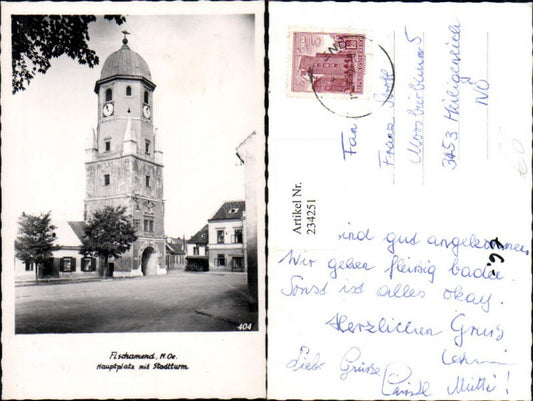 404
Fischamend, N. Oe.
Hauptplatz mit Stadtturm
Artikel Nr.
234251
Fam
Franz
Moosbierbaum 5
3453 Heiligeneich
NÖ
sind gut angekommen
Wir gehen fleißig baden
Sonst ist alles okay.
Herzlichen Gruß
Liebe Grüße
Mutti!